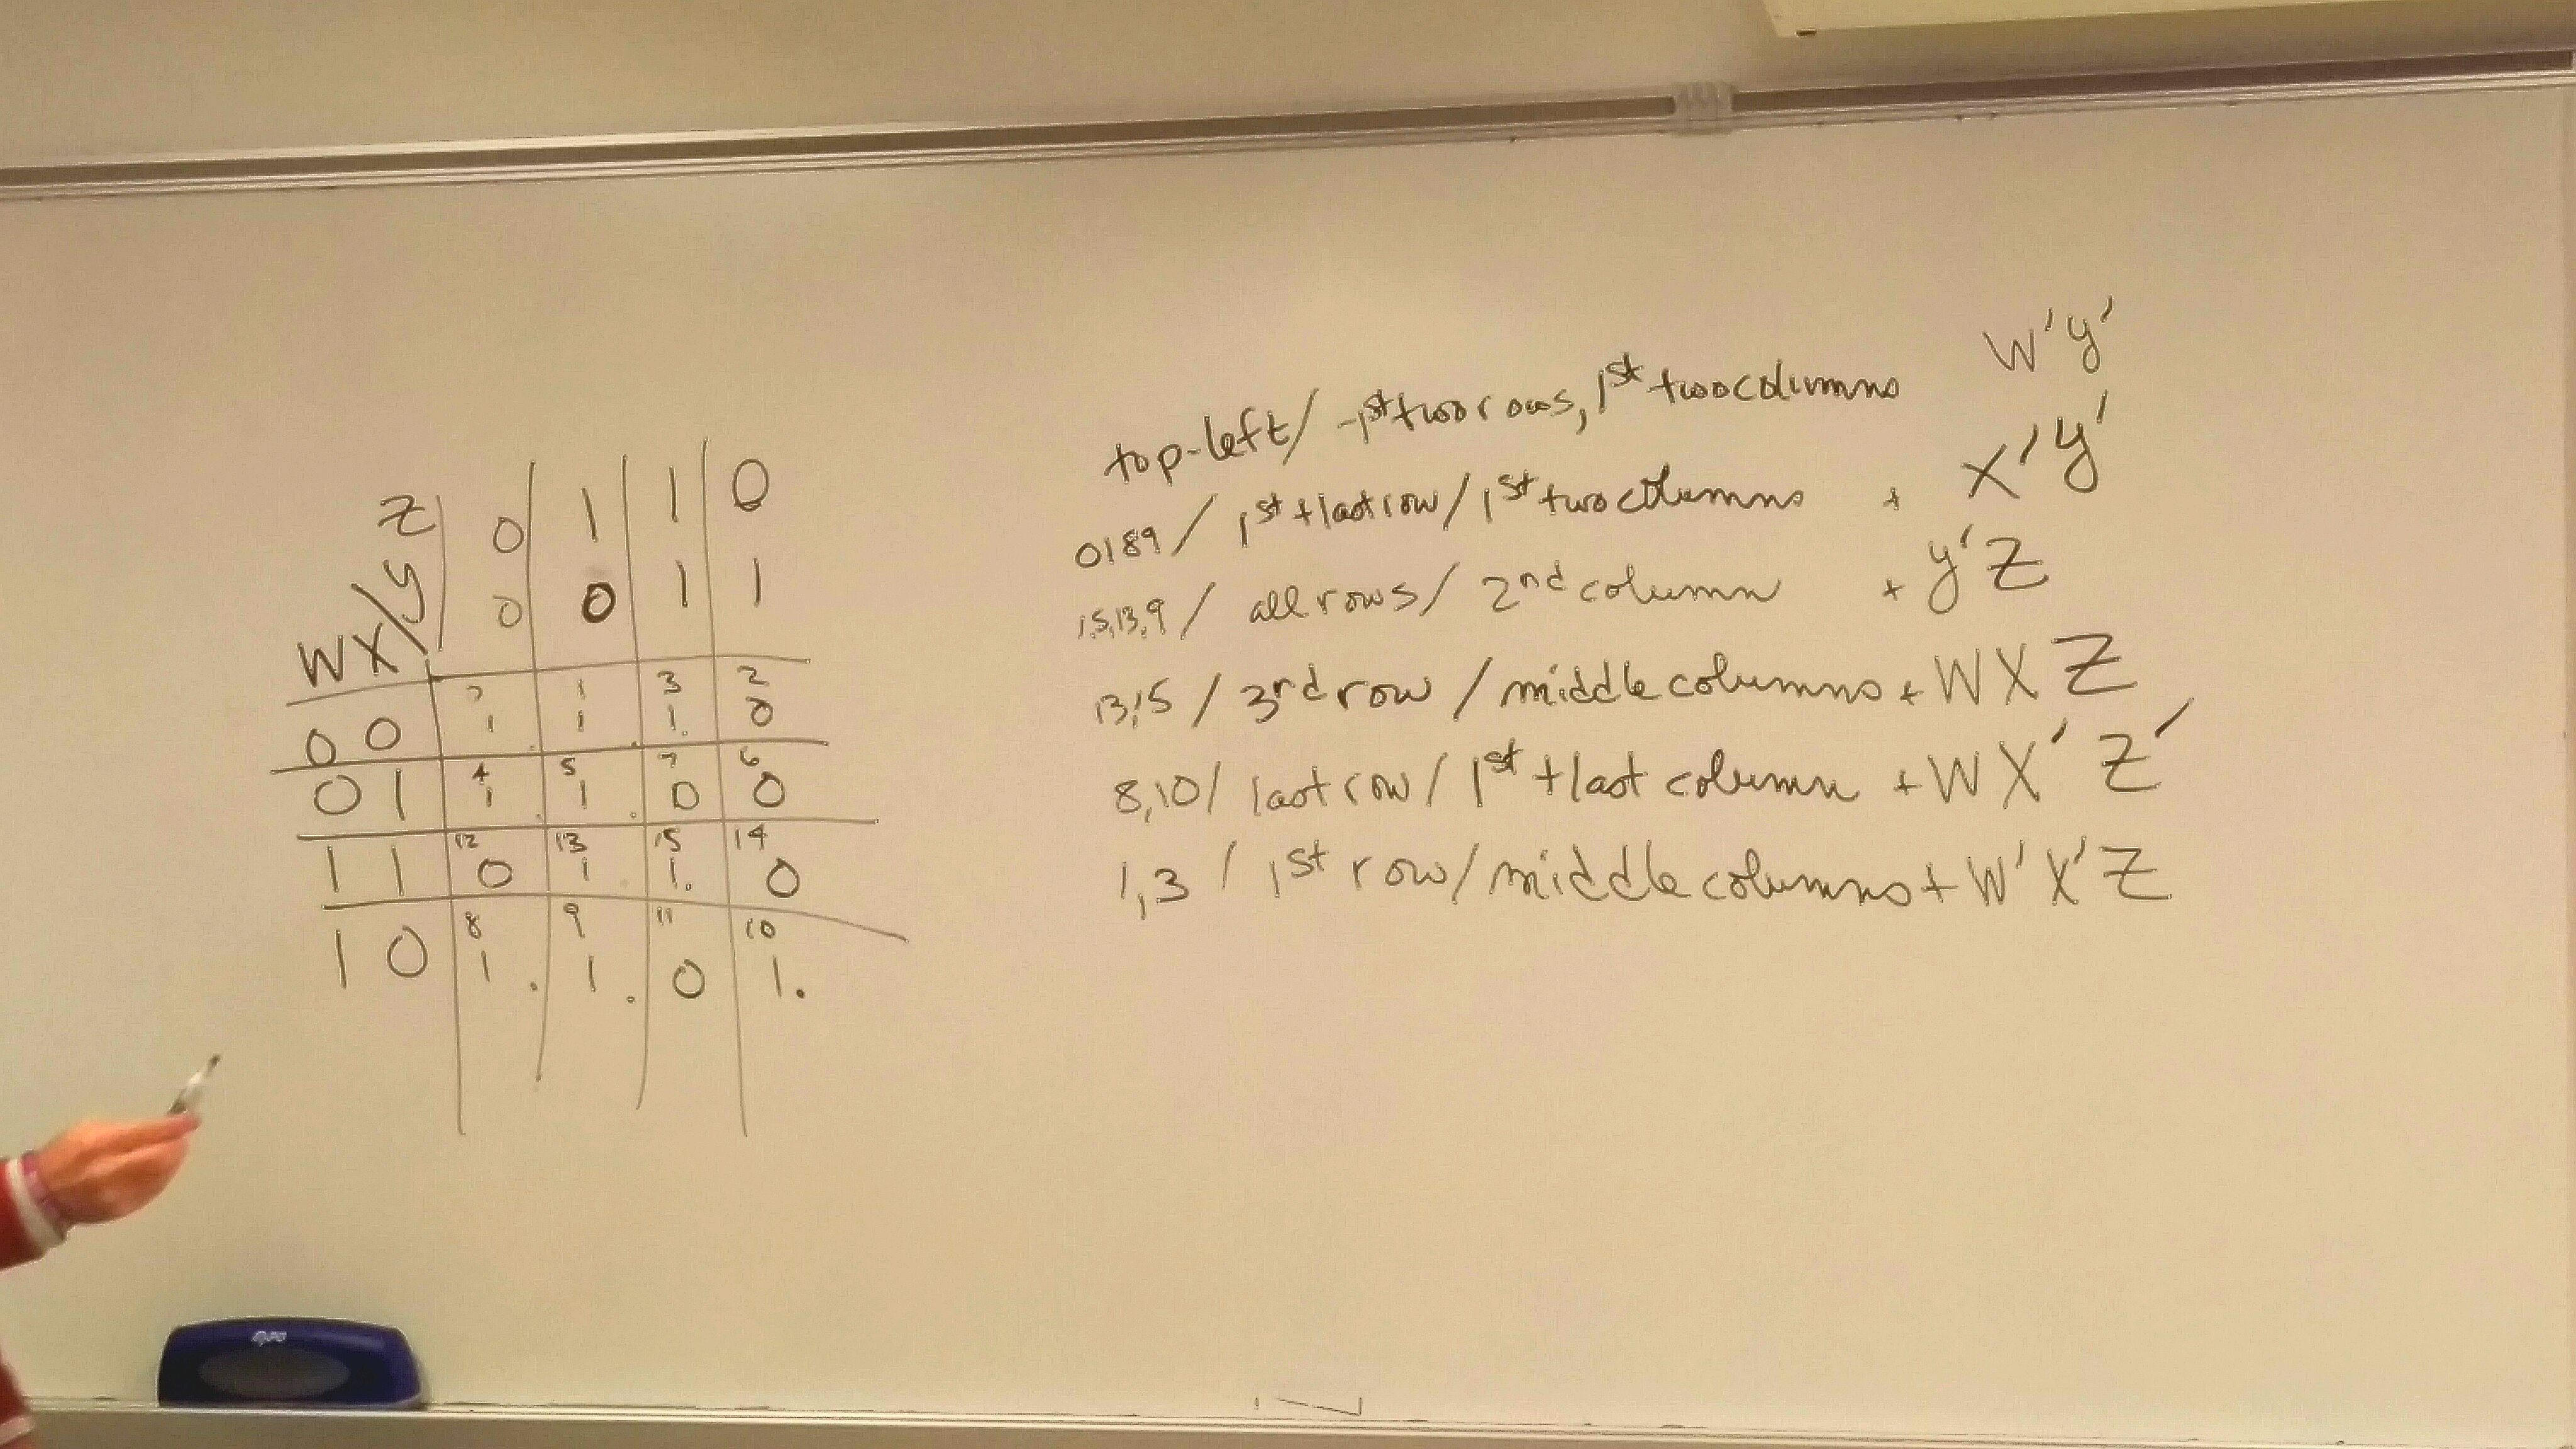 Z 0 1 1 0
WX/y 0 0 1 1
1 3 2
0 0 1 1 1. 0
4 5 7 6
0 1 1 1 0 0
12 13 15 14
1 1 0 1 1. 0
8 9 11 10
1 0 1. 1. 0 1.
top-left/ 1st two rows, 1st two columns W'y'
0189 / 1st + last row / 1st two columns + X'y'
1,5,13,9 / all rows / 2nd column + y'Z
13,15 / 3rd row / middle columns + WXZ
8,10 / last row / 1st + last column + WX'Z'
1,3 / 1st row / middle columns + W'X'Z
expo